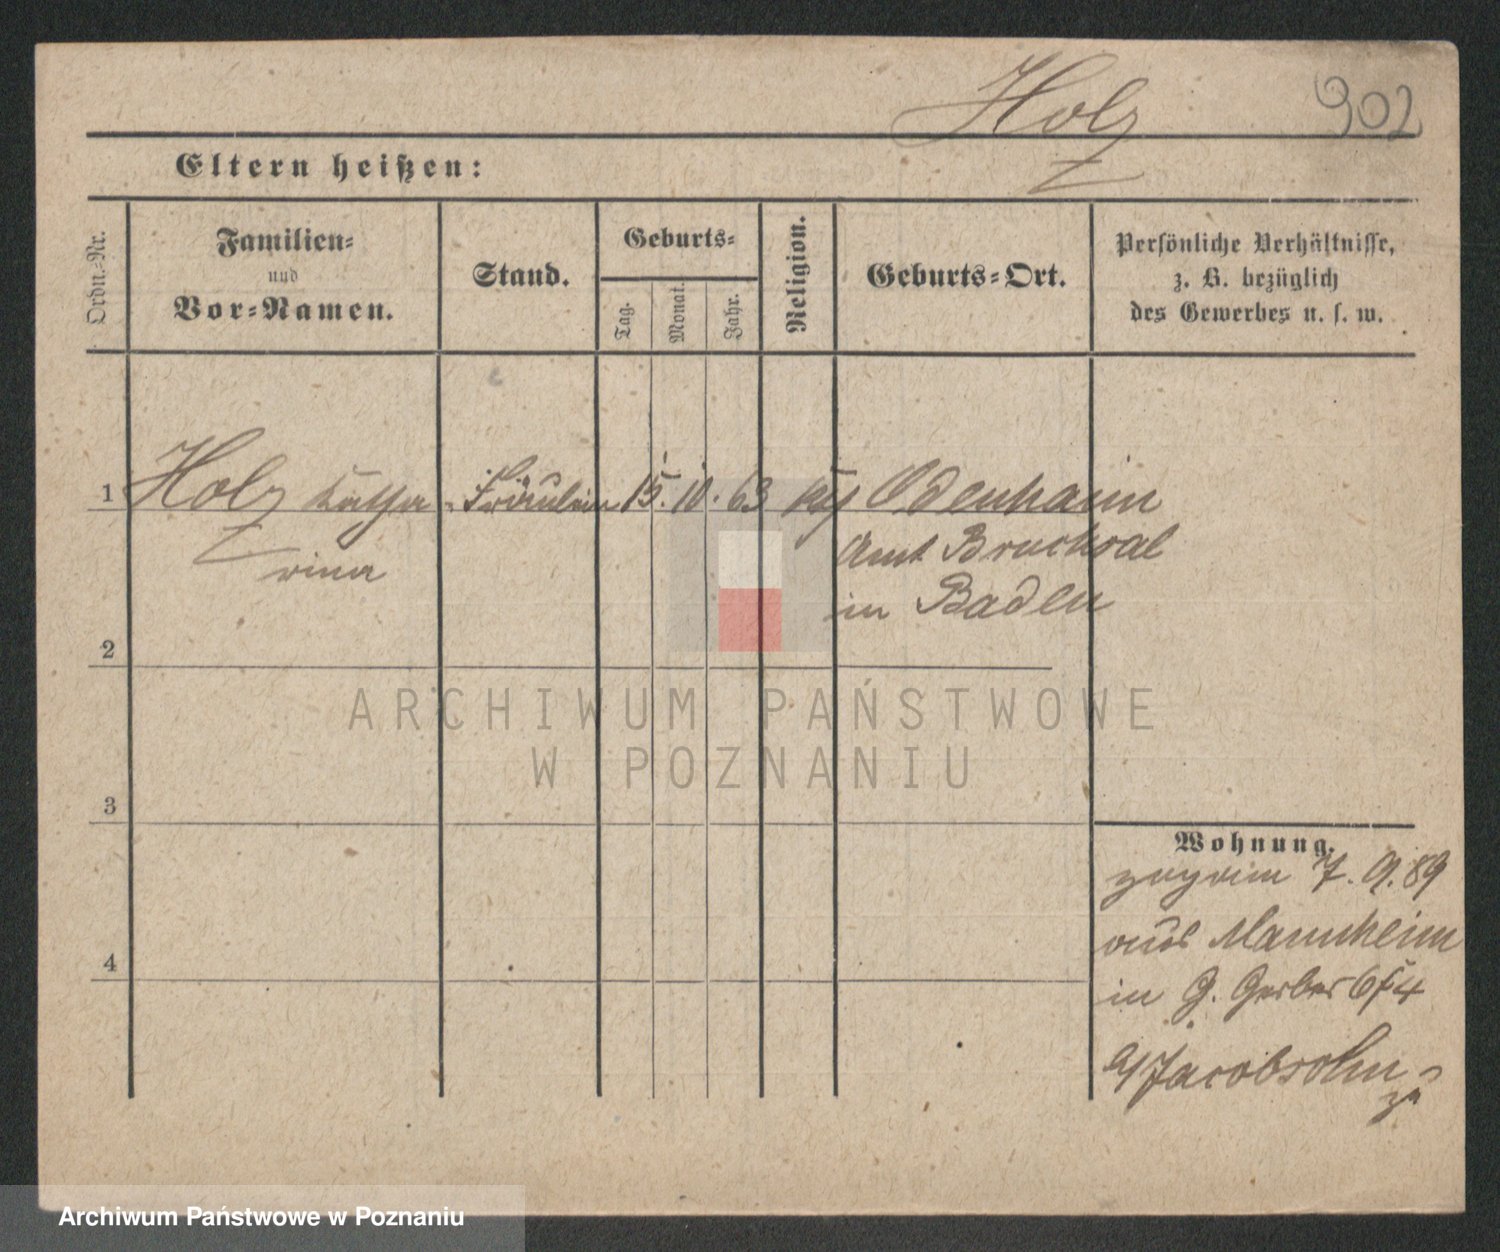 Holz
902
Eltern heißen:
Ordn.-Nr.
Familien-
und
Vor-Namen.
Stand.
Geburts-
Tag.
Monat.
Jahr.
Religion.
Geburts-Ort.
Persönliche Verhältnisse,
z. B. bezüglich
des Gewerbes u. s. w.
1 Holz Katha- Fräulein 15. 10. 63 Odenhaim
rina
Amt Bruchsal
in Baden
2
3
4
Wohnung.
7. 9. 89
aus Mannheim
in G. Gerber
Jacobsohn
ARCHIWUM PAŃSTWOWE
W POZNANIU
Archiwum Państwowe w Poznaniu